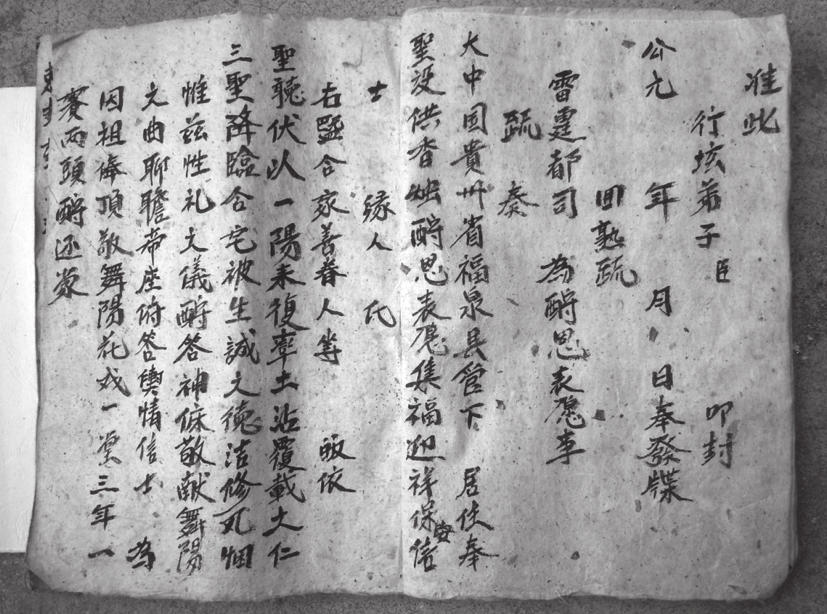 准此
行坛弟子 臣 叩封
公元 年 月 日奉發牒
回熟疏
雷霆都司 為酧恩表愿事
疏 奏
大中囯貴州省福泉县管下 居住奉
聖设供香烛酧恩表愿集福迎祥保安信
士 缘人 氏
右暨合家善眷人等 皈依
聖聽伏以一陽来復率土沾覆載大仁
三聖降臨合宅被生誠之德洁修
惟兹性礼文儀酧答神庥敬献舞陽
文曲聊瞻帝座俯答輿情信士 為
因祖俸頂敬舞陽花戏一堂三年一
賽两頭酧还蒙